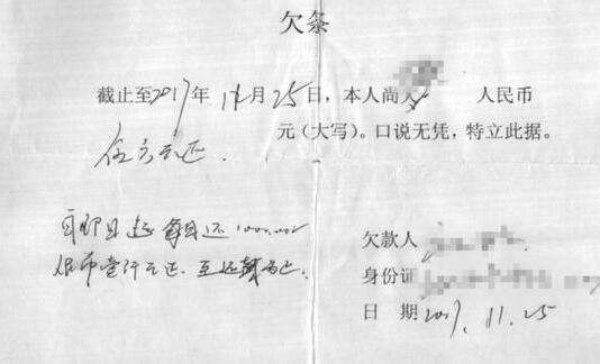 欠条
截止至2017年11月25日，本人尚欠 人民币
伍万元正. 元（大写）。口说无凭，特立此据。
自即日起每月还1000.00
人民币壹仟元正.至还清为止.
欠款人
身份证
日 期2017.11.25